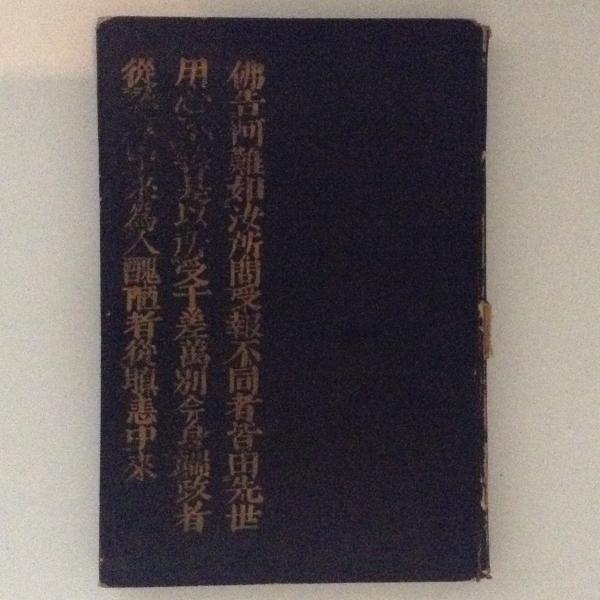 佛告阿難如汝所問受報不同者皆由先世
用心不等是以所受千差萬別今身端政者
從 中來為人醜陋者從瞋恚中來